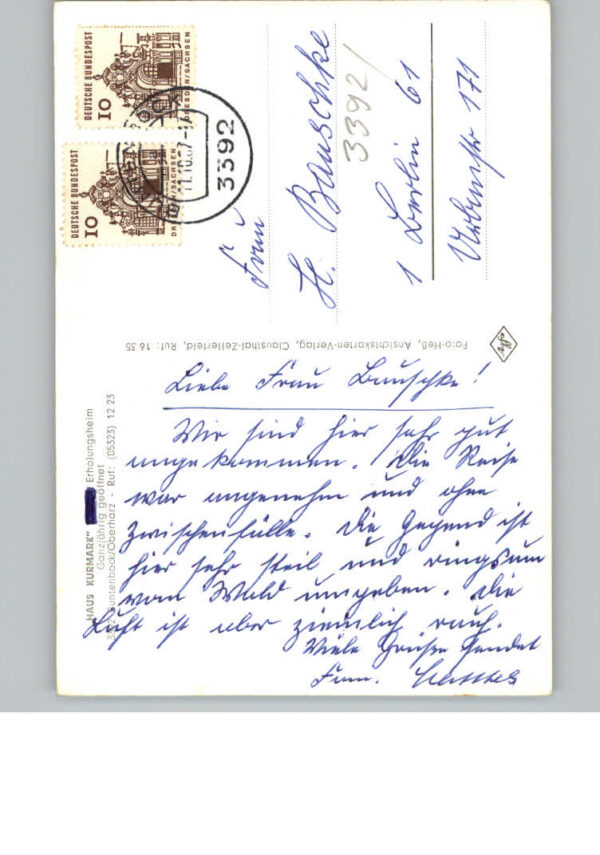 Liebe Frau Bauschke!
Wir sind hier sehr gut
angekommen. Die Reise
war angenehm und ohne
Zwischenfälle. Die Gegend ist
hier sehr steil und ringsum
vom Wald umgeben. Die
Luft ist aber ziemlich rauh.
Viele Grüße sendet
Fam.
Frau
H. Bauschke
1 Berlin 61
Urbanstr 171
3392/
DEUTSCHE BUNDESPOST
10
DRESDEN/SACHSEN
DEUTSCHE BUNDESPOST
10
3392
11.10.67
"HAUS KURMARK" Erholungsheim
Ganzjährig geöffnet
Buntenbock/Oberharz - Ruf: (05323) 12 23
Foto-Heß, Ansichtskarten-Verlag, Clausthal-Zellerfeld, Ruf: 16 35